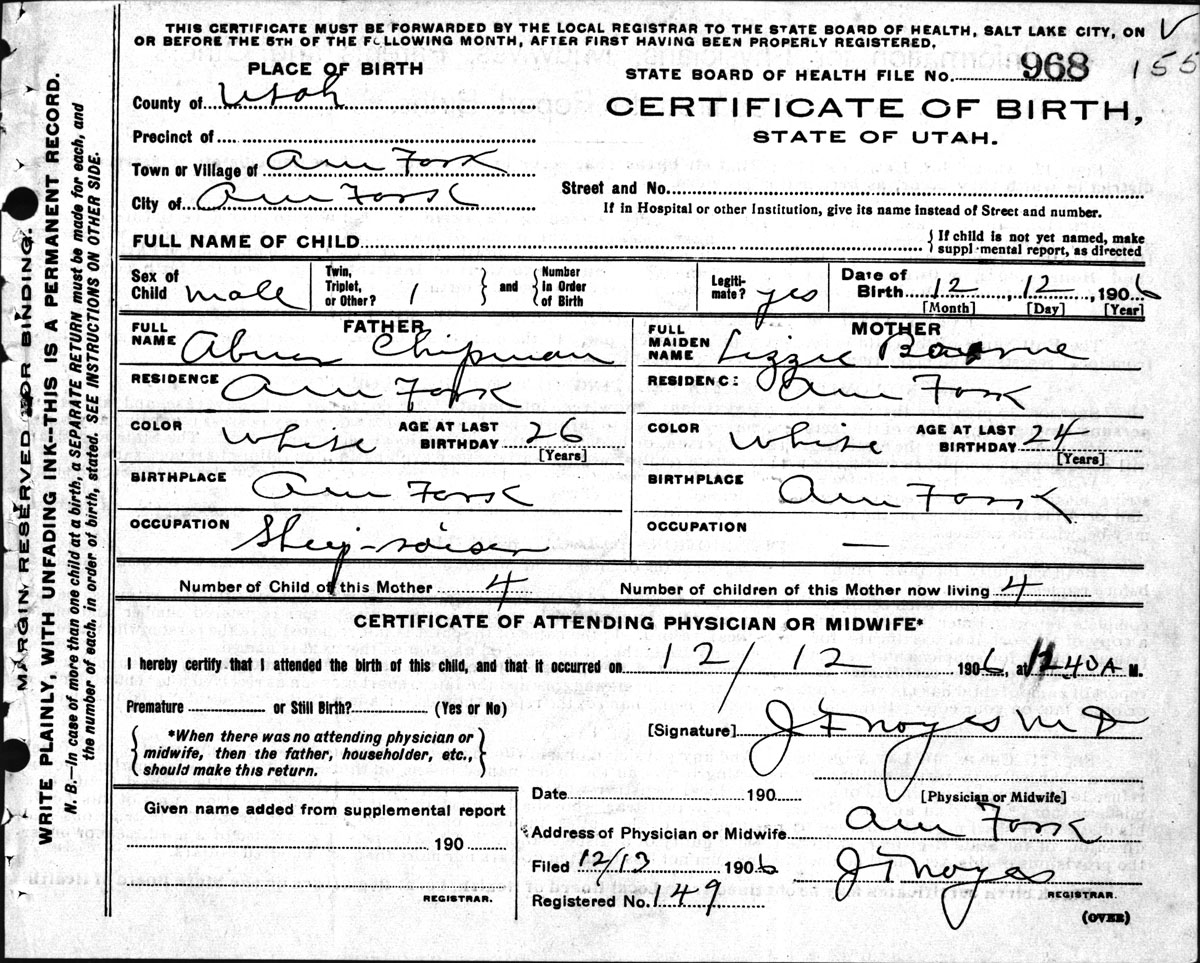 THIS CERTIFICATE MUST BE FORWARDED BY THE LOCAL REGISTRAR TO THE STATE BOARD OF HEALTH, SALT LAKE CITY, ON
OR BEFORE THE 5TH OF THE FOLLOWING MONTH, AFTER FIRST HAVING BEEN PROPERLY REGISTERED.
PLACE OF BIRTH
STATE BOARD OF HEALTH FILE NO. 968 155
County of Utah
CERTIFICATE OF BIRTH,
STATE OF UTAH.
Precinct of
Town or Village of Am Fork
City of Am Fork
Street and No.
If in Hospital or other Institution, give its name instead of Street and number.
FULL NAME OF CHILD
If child is not yet named, make
suppl·mental report, as directed
Sex of Child male
Twin, Triplet, or Other? 1 and Number in Order of Birth
Legitimate? yes
Date of Birth 12, 12, 1906
[Month] [Day] [Year]
FATHER
FULL NAME Abner Chipman
MOTHER
FULL MAIDEN NAME Lizzie
RESIDENCE Am Fork
RESIDENCE Am Fork
COLOR White AGE AT LAST BIRTHDAY 26 [Years]
COLOR White AGE AT LAST BIRTHDAY 24 [Years]
BIRTHPLACE Am Fork
BIRTHPLACE Am Fork
OCCUPATION Sheep-raiser
OCCUPATION —
Number of Child of this Mother 4
Number of children of this Mother now living 4
CERTIFICATE OF ATTENDING PHYSICIAN OR MIDWIFE*
I hereby certify that I attended the birth of this child, and that it occurred on 12/12 1906, at 40 A M.
Premature or Still Birth? (Yes or No)
[Signature] J F Noyes M D
*When there was no attending physician or
midwife, then the father, householder, etc.,
should make this return.
Date 190
[Physician or Midwife]
Given name added from supplemental report
190
REGISTRAR.
Address of Physician or Midwife Am Fork
Filed 12/13 1906 J F Noyes
REGISTRAR.
Registered No. 149
(OVER)
MARGIN RESERVED FOR BINDING.
WRITE PLAINLY, WITH UNFADING INK--THIS IS A PERMANENT RECORD.
N. B.—In case of more than one child at a birth, a SEPARATE RETURN must be made for each, and
the number of each, in order of birth, stated. SEE INSTRUCTIONS ON OTHER SIDE.